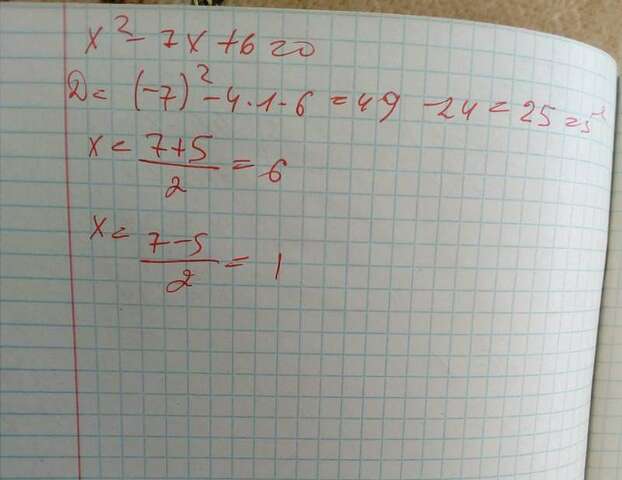 x² - 7x + 6 = 0
D = (-7)² - 4 · 1 · 6 = 49 - 24 = 25 = 5²
x = (7+5)/2 = 6
x = (7-5)/2 = 1